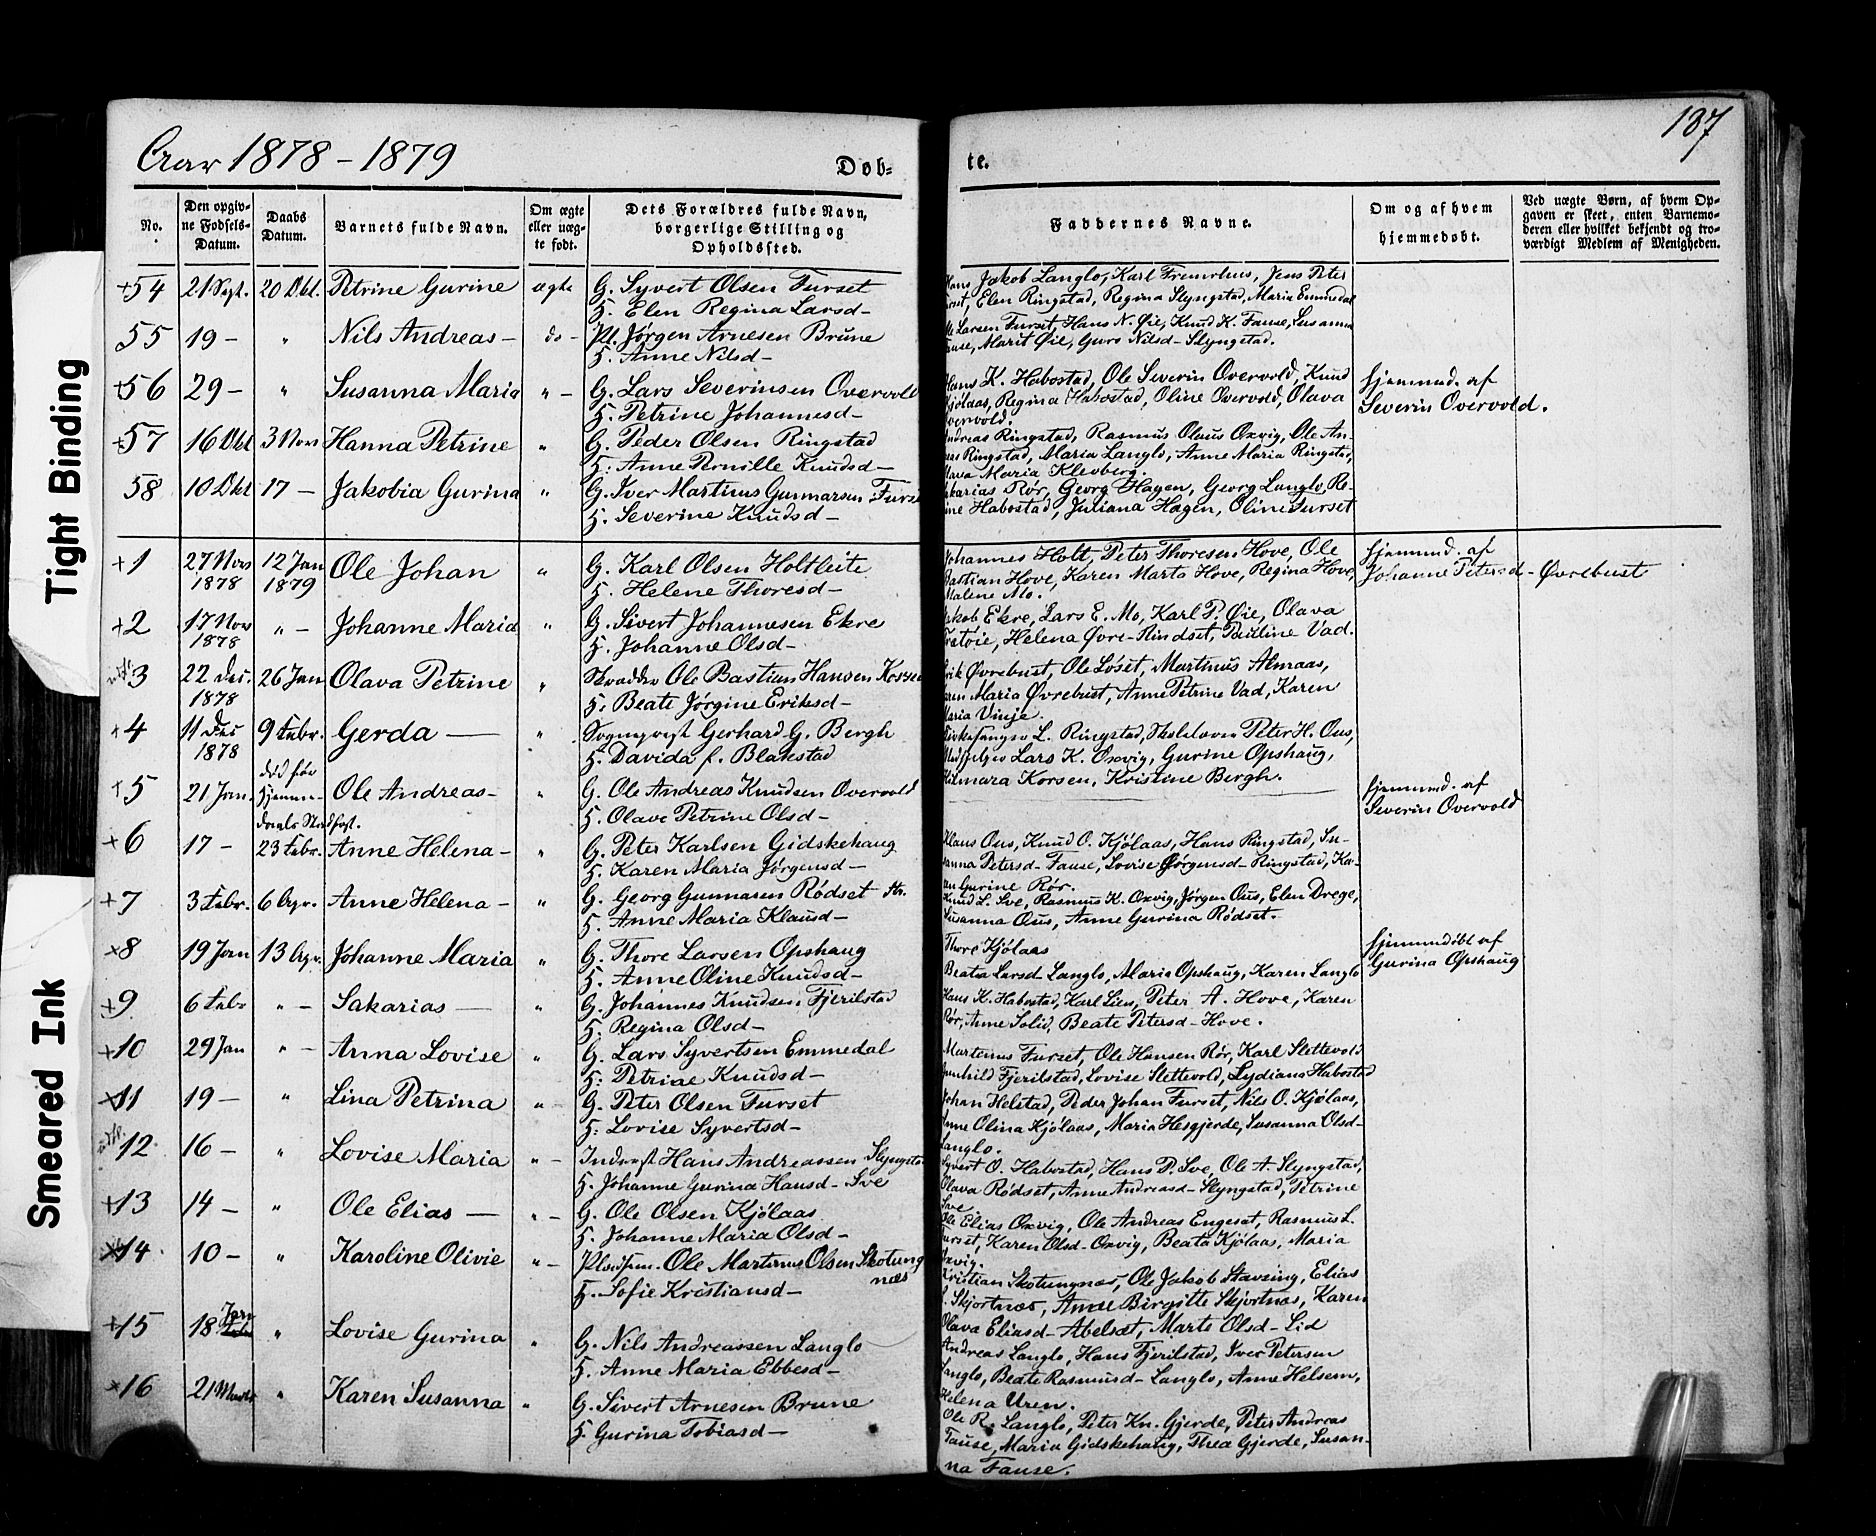 Aar 1878 - 1879
Døb=
te.
187
No.
Den opgiv-
ne Fødsels-
Datum.
Daabs
Datum.
Barnets fulde Navn.
Om ægte
eller uæg-
te født.
Dets Forældres fulde Navn,
borgerlige Stilling og
Opholdssted.
Faddernes Navne.
Om og af hvem
hjemmedøbt.
Ved uægte Børn, af hvem Op-
gaven er skeet, enten Barnemo-
deren eller hvilket bekjendt og tro-
værdigt Medlem af Menigheden.
+54 21 Sept. 20 Okt. Petrine Gurine ægte G. Syvert Olsen Furset
H. Elen Regina Larsd-
Jakob Langlo, Karl Fremrhus, Jens Peter
Elen Ringstad, Regina Slyngstad, Maria Emmedal
55 19 - " Nils Andreas - do - Pl. Jørgen Arnesen Brune
H. Anne Nilsd-
Larsen Furset, Hans N. Øie, Knud K. Fause, Susanna
Marit Øie, Guro Nilsd- Slyngstad.
+56 29 - " Susanna Maria " - G. Lars Severinsen Overvold
H. Petrine Johannesd-
Hans K. Habostad, Ole Severin Overvold, Knud
Kjølaas, Regina Habostad, Oline Overvold, Olava
Overvold.
hjemmd. af
Severin Overvold.
+57 16 Okt 3 Nov Hanna Petrine " G. Peder Olsen Ringstad
H. Anne Pernille Knudsd-
Andreas Ringstad, Rasmus Olaus Oxvig, Ole An-
Ringstad, Maria Langlo, Anne Maria Ringstad,
Maria Klevberg.
58 10 Okt 17 - Jakobia Gurina " G. Iver Martinus Gunnarsen Furset
H. Severine Knudsd-
Sakarias Rør, Georg Hagen, Georg Langlo, Re-
Habostad, Juliana Hagen, Oline Furset
+1 27 Nov 12 Jan Ole Johan " G. Karl Olsen Holtleite
1878 1879 H. Helene Thoresd-
Johannes Holt, Peter Thoresen Hove, Ole
Bastian Hove, Karen Marta Hove, Regina Hove,
Malene Mo.
hjemmd. af
Johanne Petersd- Øvrebust
+2 17 Nov " - Johanne Maria " G. Sivert Johannesen Ekre
1878 H. Johanne Olsd-
Jakob Ekre, Lars E. Mo, Karl P. Øie, Olava
Helena Øvre-Rindset, Pauline Vad.
3 22 Des. 26 Jan Olava Petrine " Ole Bastian Hansen
1878 H. Beate Jørgine Eriksd-
Erik Øvrebust, Ole Løset, Martinus Almaas,
Maria Øvrebust, Anne Petrine Vad, Karen
Maria Vinje.
+4 11 Des 9 Febr. Gerda - " Sogneprest Gerhard G. Bergh
1878 H. Davida f. Blakstad
Kirkesanger L. Ringstad, Peter H. Ous,
Lars K. Oxvig, Gurine Opshaug,
Hilmara Korsen, Kristine Bergh.
+5 21 Jan. død før
hjemme-
daabs Stadfæst. Ole Andreas - " G. Ole Andreas Knudsen Overvold
H. Olave Petrine Olsd-
hjemmd. af
Severin Overvold
+6 17 - 23 Febr. Anne Helena - " G. Peter Karlsen Gidskehaug
H. Karen Maria Jørgensd-
Klaus Ous, Knud O. Kjølaas, Hans Ringstad, Su-
sanna Petersd- Fause, Lovise Jørgensd- Ringstad, Ka-
Gurine Rør.
+7 3 Febr. 6 Apr. Anne Helena - " G. Georg Gunnasen Rødset
H. Anne Maria Klausd-
Knud L. Sve, Rasmus K. Oxvig, Jørgen Ous, Elen Drege,
Susanna Ous, Anne Gurina Rødset.
+8 19 Jan 13 Apr. Johanne Maria " G. Thore Larsen Opshaug
H. Anne Oline Knudsd-
Thore Kjølaas
Beata Larsd- Langlo, Maria Opshaug, Karen Langlo
hjemmedøbt af
Gurina Opshaug
+9 6 Febr " - Sakarias - " G. Johannes Knudsen Fjerilstad
H. Regina Olsd-
Hans K. Habostad, Karl Lien, Peter A. Hove, Karen
Rør, Anne Solid, Beate Petersd- Hove.
+10 29 Jan " - Anna Lovise " G. Lars Syvertsen Emmedal
H. Petrine Knudsd-
Martinus Furset, Ole Hansen Rør, Karl Slettevold
Gunhild Fjerilstad, Lovise Slettevold, Lydiana Habostad
+11 19 - " Lina Petrina " - G. Peter Olsen Furset
H. Lovise Syvertsd-
Johan Helstad, Peder Johan Furset, Nils O. Kjølaas,
Anne Olina Kjølaas, Maria Hesgjerde, Susanna Olsd-
Langlo.
12 16 - " Lovise Maria " - Hans Andreassen Slyngstad
H. Johanne Gurina Hansd- Sve
Syvert O. Habostad, Hans P. Sve, Ole A. Slyngstad,
Olava Rødset, Anne Andreasd- Slyngstad, Petrine
Sve.
+13 14 - " Ole Elias - " - G. Ole Olsen Kjølaas
H. Johanne Maria Olsd-
Ole Elias Oxvig, Ole Andreas Engeset, Rasmus L.
Furset, Karen Olsd- Oxvig, Beata Kjølaas, Maria
Oxvig.
+14 10 - " Karoline Olivie " - Ole Martinus Olsen Skotung
næs
H. Sofie Kristiansd-
Kristian Skotungnæs, Ole Jakob Stavseng, Elias
Skjortnæs, Anne Birgitte Skjortnæs, Karen
Olava Eliasd- Abelset, Marte Olsd- Lid
+15 18 Jan " Lovise Gurina " G. Nils Andreassen Langlo
H. Anne Maria Ebbesd-
Andreas Langlo, Hans Fjerilstad, Iver Petersen
Langlo, Beate Rasmusd- Langlo, Anne Helsem,
Helena Uren.
+16 21 Marts " Karen Susanna " G. Sivert Arnesen Brune
H. Gurina Tobiasd-
Ole R. Langlo, Peter Kn. Gjerde, Peter Andreas
Fause, Maria Gidskehaug, Thea Gjerde, Susan-
na Fause.
Tight Binding
Smeared Ink